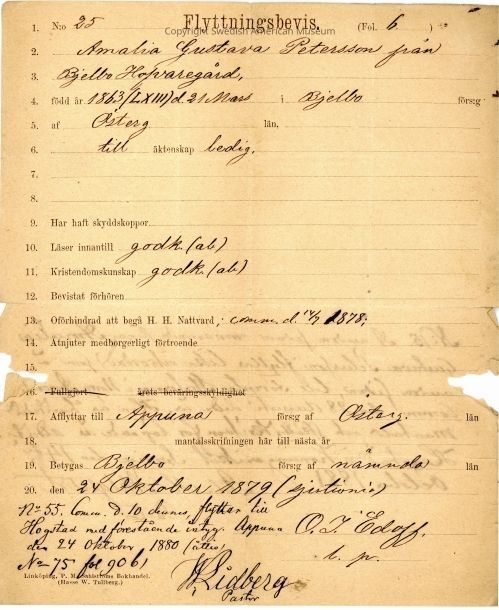 Copyright Swedish American Museum
1. N:o 25 Flyttningsbevis. (Fol. 6.)
2. Amalia Gustava Petersson från
3. Bjelbo Hofvaregård,
4. född år 1863 (LXIII) d. 21 Mars i Bjelbo förs:g
5. af Österg län,
6. till äktenskap ledig.
7.
8.
9. Har haft skyddskoppor
10. Läser innantill godk. (ab)
11. Kristendomskunskap godk. (ab)
12. Bevistat förhören
13. Oförhindrad att begå H. H. Nattvard; comm. d. 1878;
14. Åtnjuter medborgerligt förtroende
15.
16. Fullgjort årets beväringsskyldighet
17. Afflyttar till Appuna förs:g af Österg. län
18. mantalsskrifningen här till nästa år
19. Betygas Bjelbo förs:g af nämnda län
20. den 24 Oktober 1879 (sjutionio)
No 55. Comm. d. 10 dennes, flyttar till
Hogstad med förestående intyg. Appuna O. T. Edoff.
den 24 Oktober 1880 (åttio) v. p.
No 75 fol 906
W. Lidberg
Pastor
Linköping, P. M. Sahlströms Bokhandel.
(Hasse W. Tullberg.)